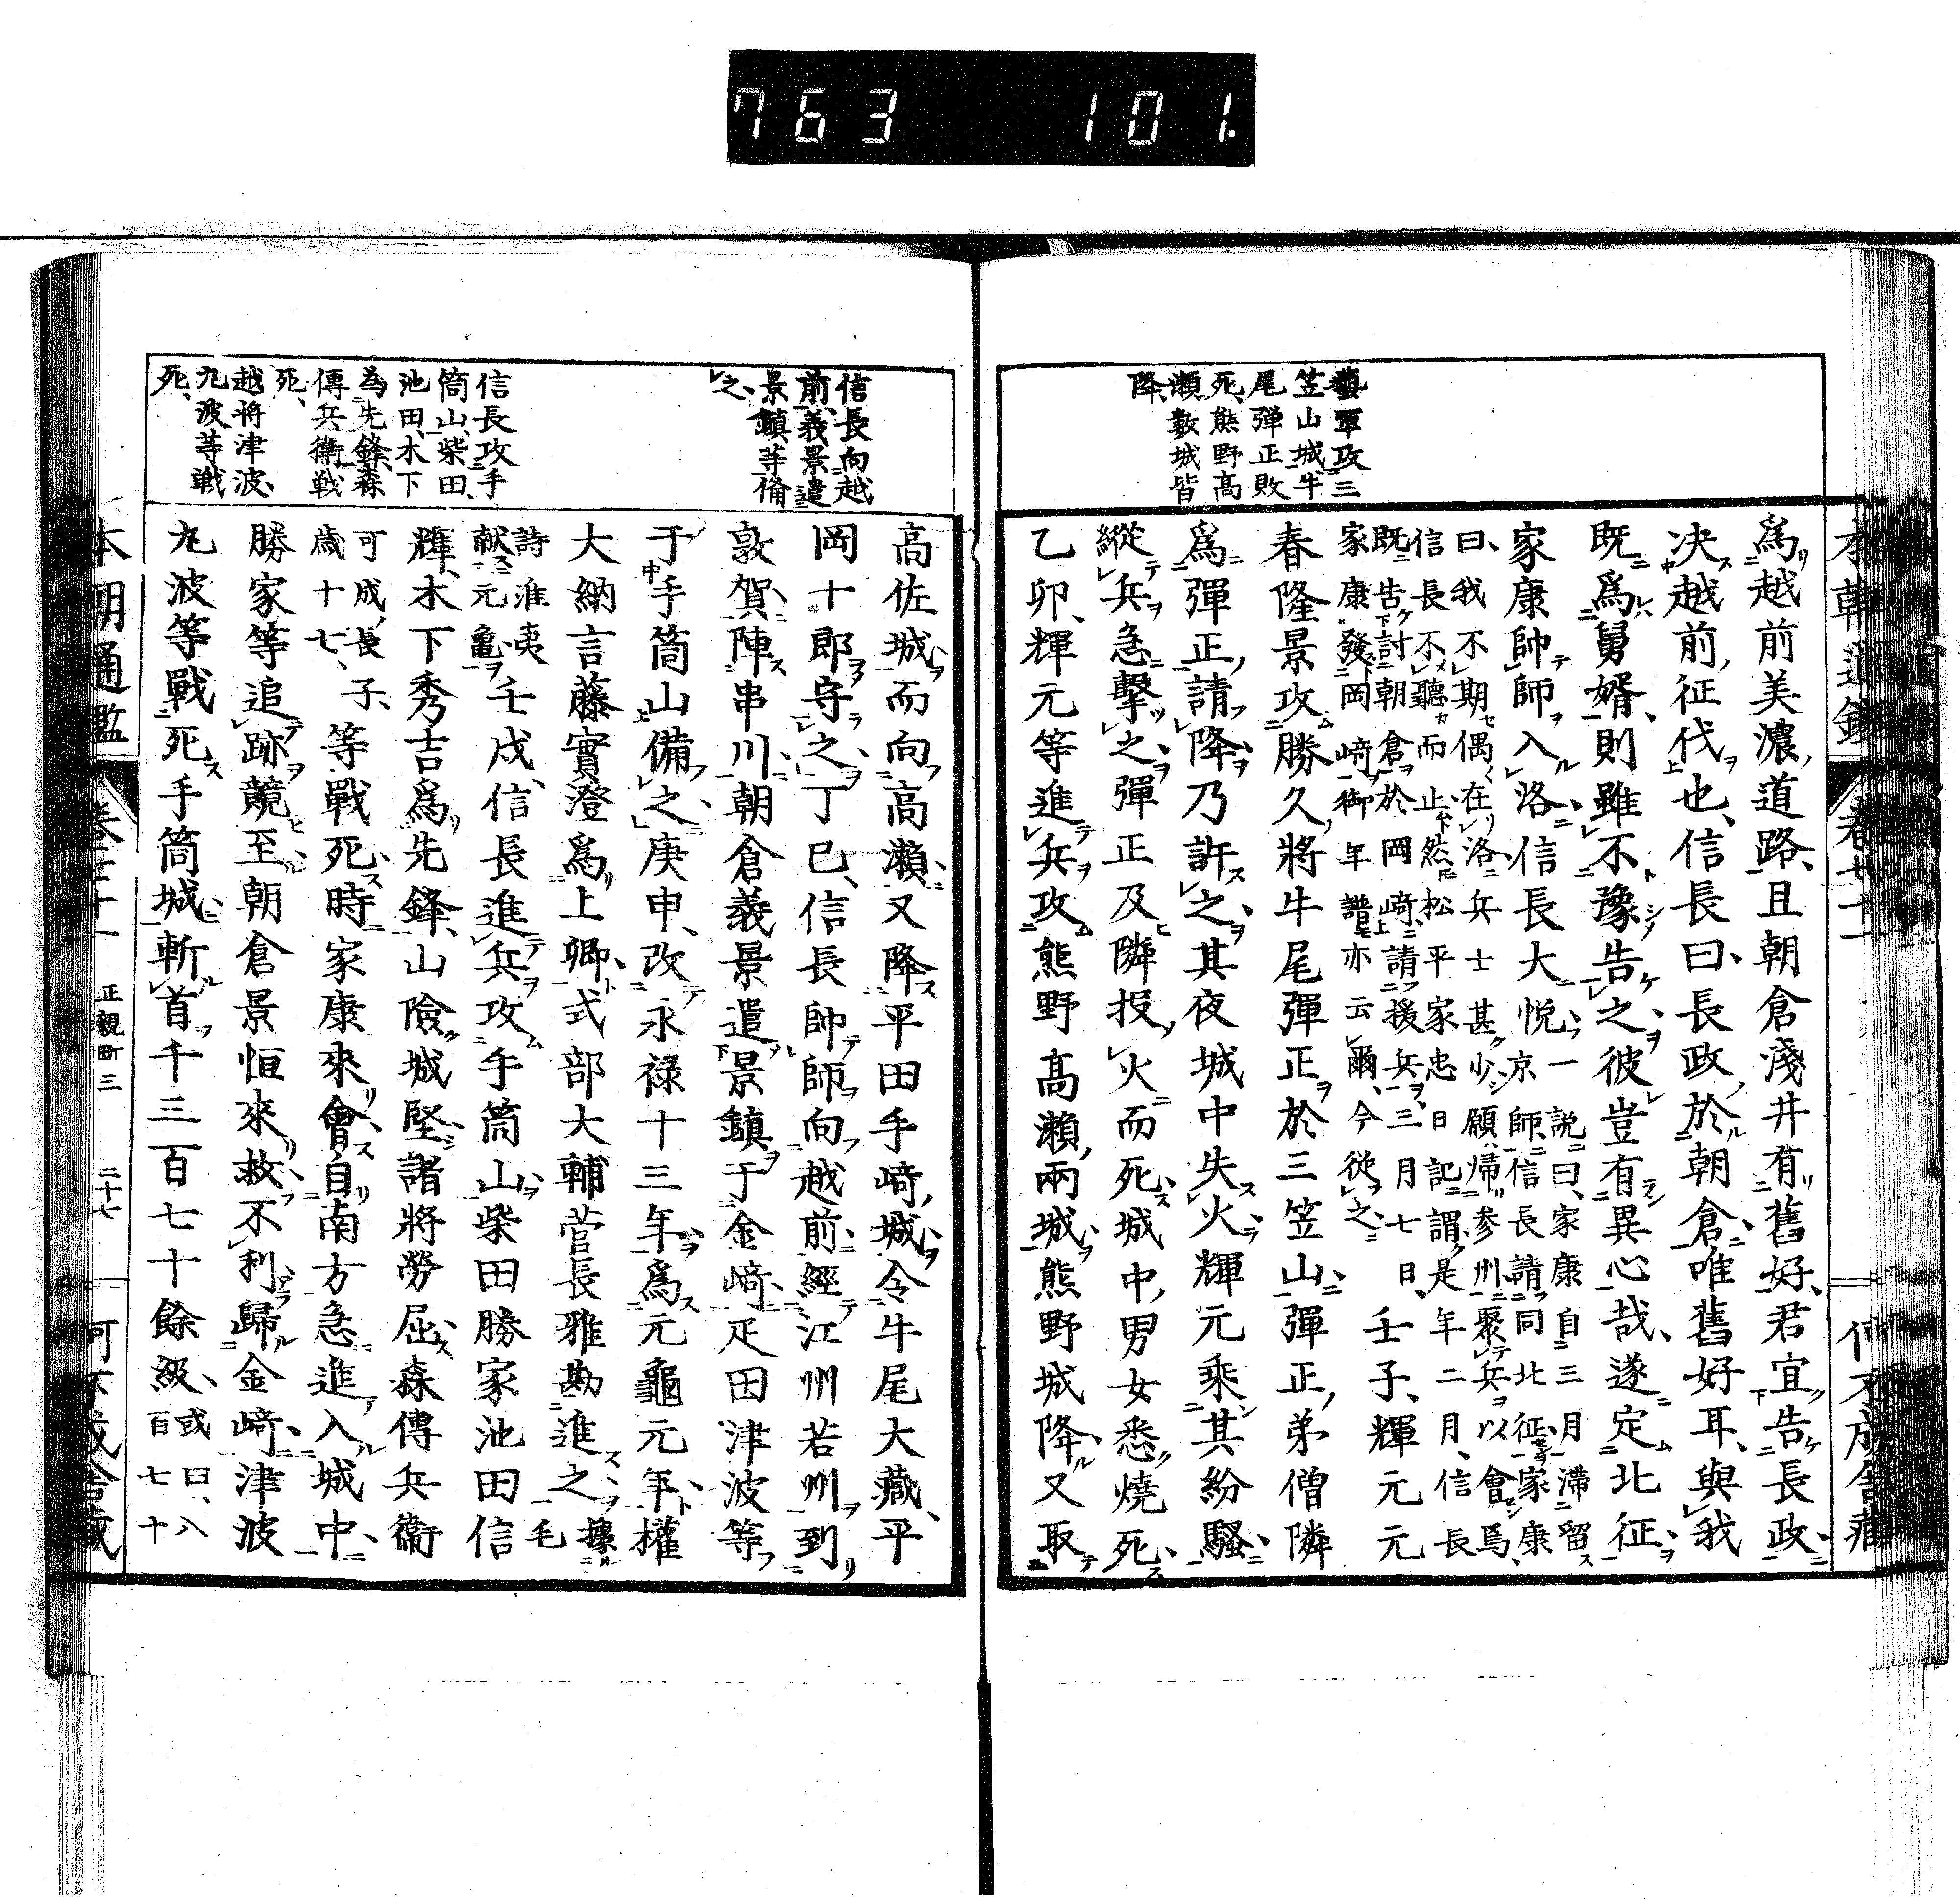 763 101.
藝軍攻三
笠山城、牛
尾彈正敗
死、熊野高
瀨數城皆
降、
爲越前美濃道路、且朝倉淺井有舊好、君宜告長政、
决越前征伐也、信長曰、長政於朝倉唯舊好耳、與我
既爲舅婿、則雖不豫告之彼豈有異心哉、遂定北征、
家康帥師入洛、信長大悅、一說曰、家康自三月滯留
京師、信長請同北征、家康
曰、我不期偶在洛、兵士甚少、願歸參州聚兵以會焉、
信長不聽而止、然松平家忠日記謂、是年二月、信長
既告討朝倉於岡崎、請援兵、三月七日、
家康發岡崎、御年譜亦云爾、今從之、
壬子、輝元元
春隆景攻勝久將牛尾彈正於三笠山、彈正弟僧隣
爲彈正請降、乃許之、其夜城中失火、輝元乘其紛騷、
縱兵急擊之、彈正及隣投火而死、城中男女悉燒死、
乙卯、輝元等進兵攻熊野高瀨兩城、熊野城降、又取
信長向越
前、義景遣
景鎭等備
之、
信長攻手
筒山、柴田、
池田、木下
為先鋒、森
傳兵衞戰
死、
越將津波、
九波等戰
死、
高佐城而向高瀨、又降平田手崎城、令牛尾大藏、平
岡十郎守之、丁巳、信長帥師向越前、經江州若州到
敦賀、陣串川、朝倉義景遣景鎭于金崎、疋田津波等
于手筒山備之、庚申、改永祿十三年爲元龜元年、權
大納言藤實澄爲上卿、式部大輔菅長雅勘進之、據毛
詩淮夷
献元亀、
壬戌、信長進兵攻手筒山、柴田勝家池田信
輝、木下秀吉爲先鋒、山險城堅、諸將勞屈、森傳兵衞
可成長子、
歲十七、
等戰死、時家康來會、自南方急進入城中、
勝家等追跡競至、朝倉景恒來救、不利歸金崎、津波
九波等戰死、手筒城斬首千三百七十餘級、或曰、八
百七十
本朝通鑑
正親町三
二十七